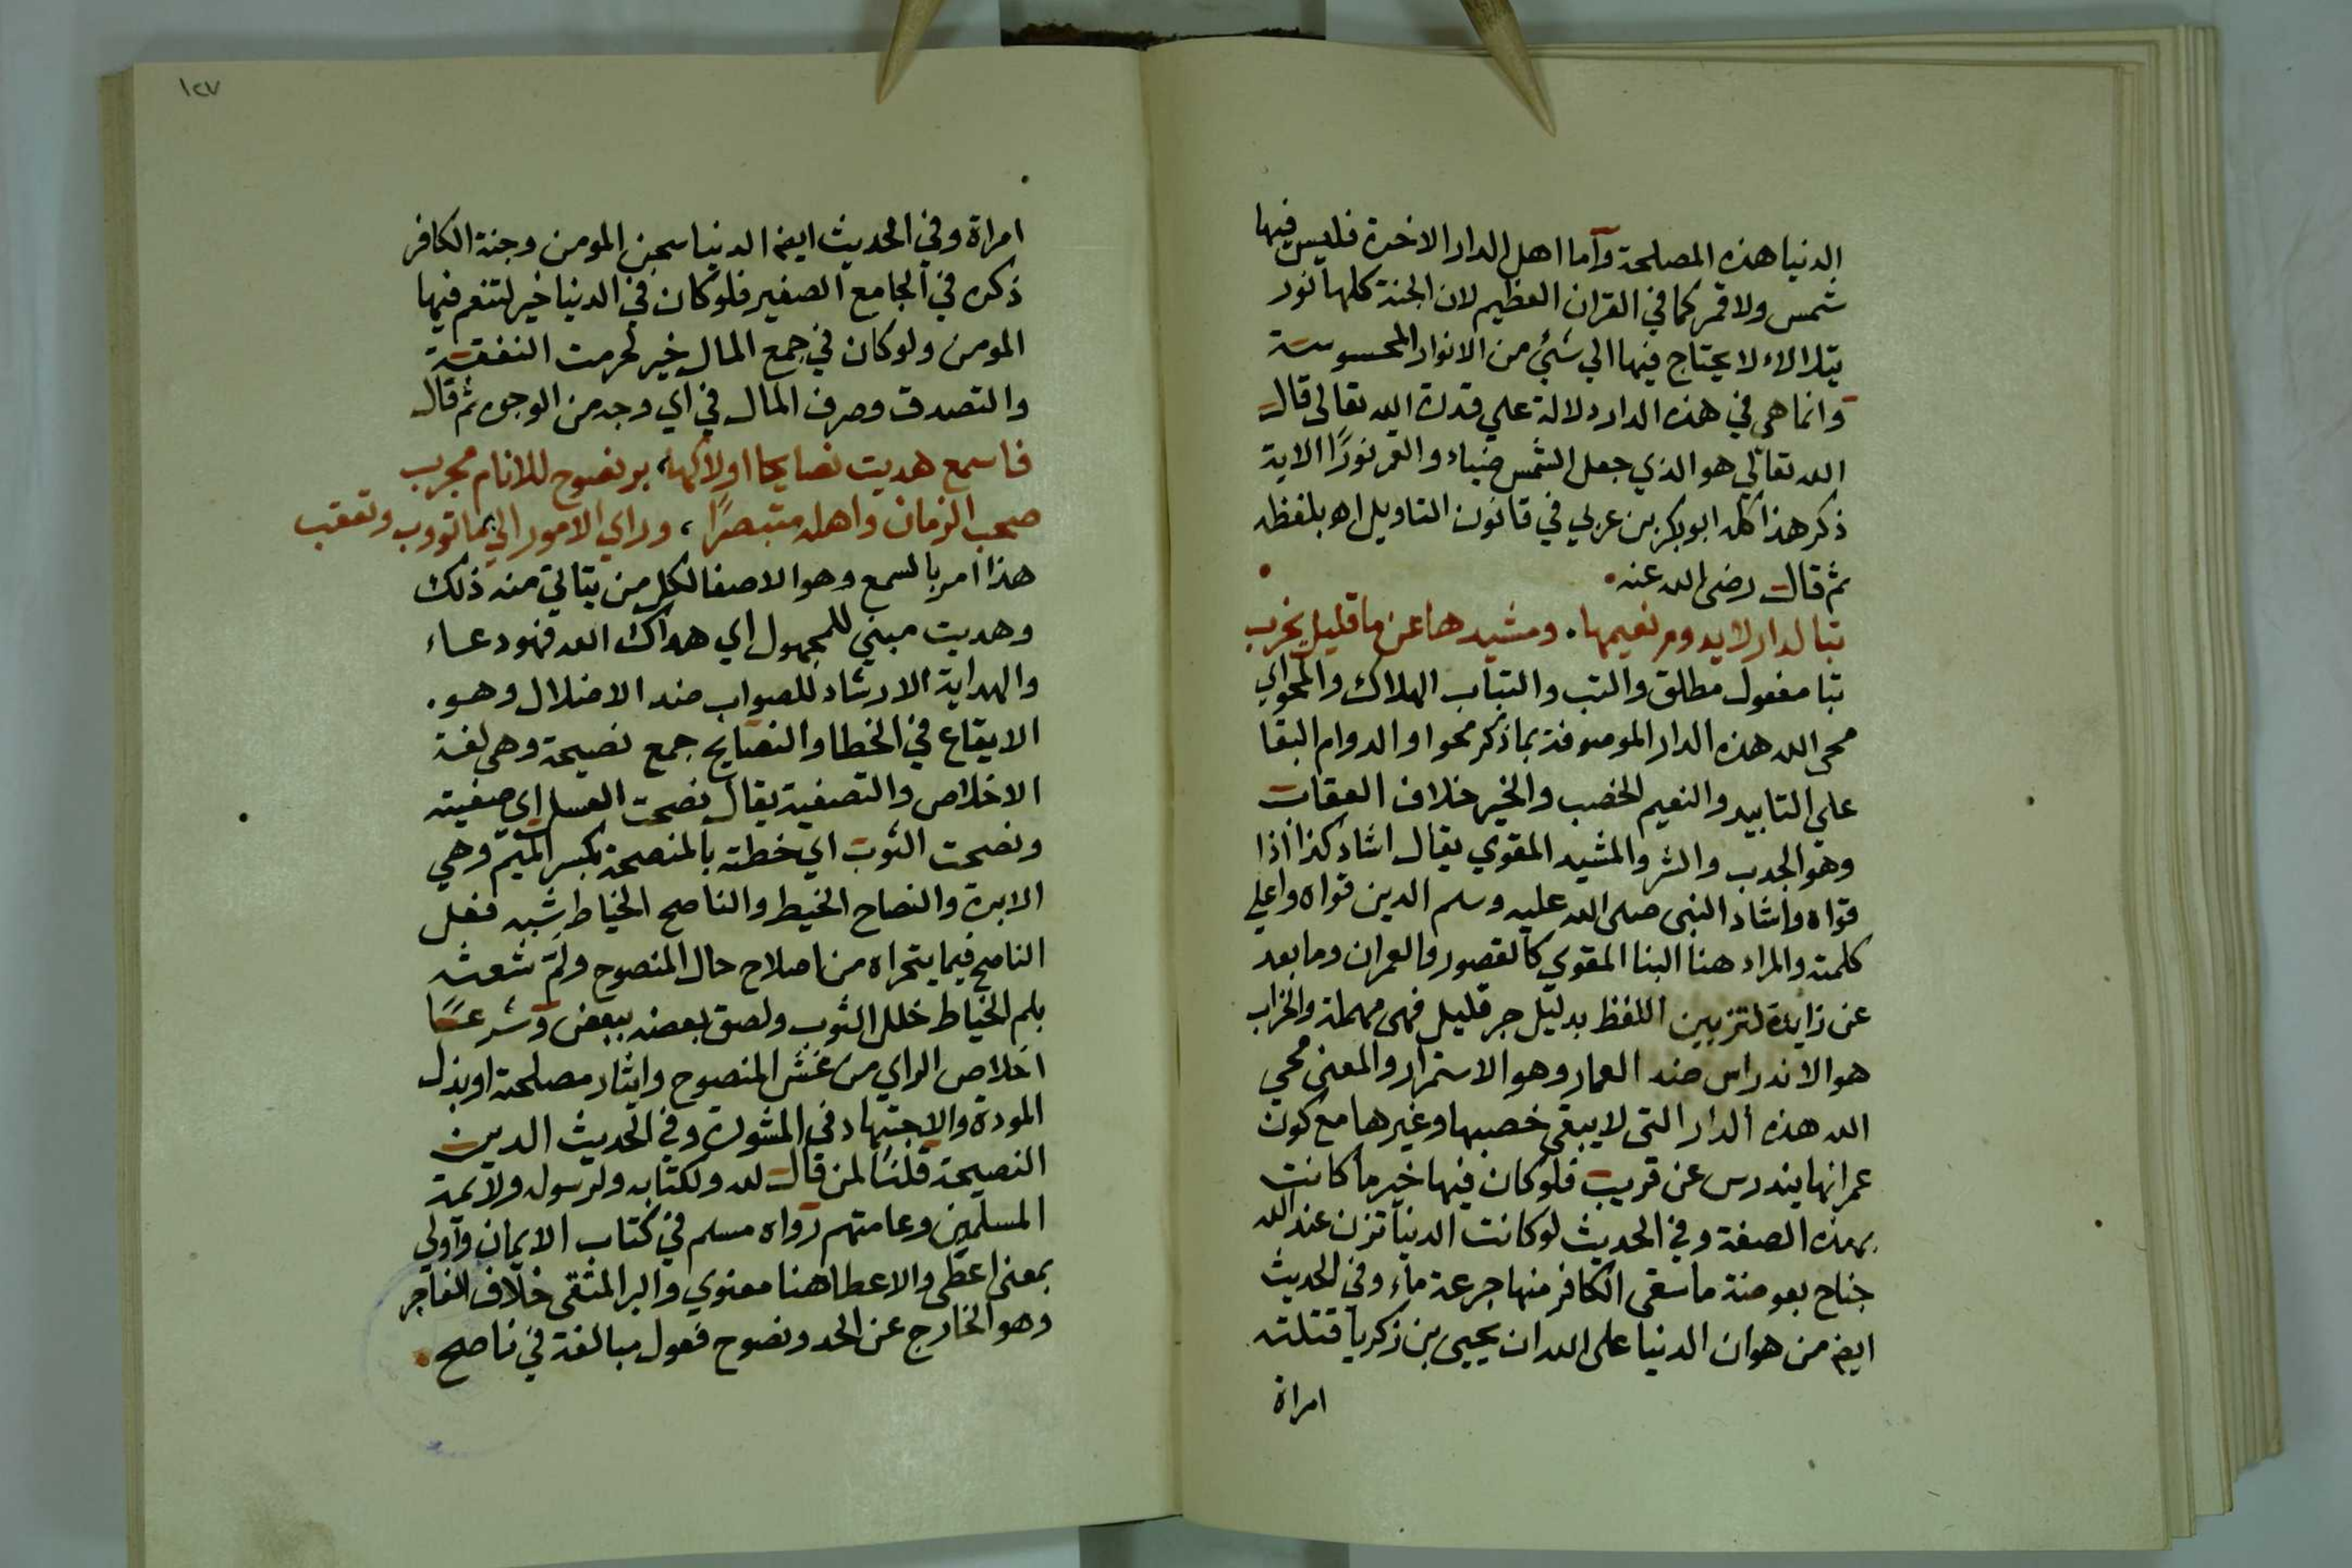 الدنيا هذه المصلحة وأما اهل الدار الاخرة فليس فيها
شمس ولا قمر كما في القران العظيم لان الجنة كلها نور
يتلالاء لا يحتاج فيها الي شئ من الانوار المحسوسة
وانما هي في هذه الدار دلالة علي قدرة الله تعالى قال
الله تعالي هو الذي جعل الشمس ضياء والقمر نورًا الاية
ذكر هذا كله ابوبكر بن عربي في قانون التاويل اهـ بلفظه
ثم قال رضى الله عنه
تبا لدار لا يدوم نعيمها ومشيدها عن ما قليل يخرب
تبا مفعول مطلق والتب والتباب الهلاك والمحو اي
محى الله هذه الدار الموصوفة بما ذكر محوا والدوام البقا
علي التابيد والنعيم الخصب والخير خلاف العقاب
وهو الجدب والشر والمشيد المقوي يقال اشاد كذا اذا
قواه واشاد النبى صلى الله عليه وسلم الدين قواه واعلي
كلمته والمراد هنا البنا المقوي كالقصور والعمران وما بعد
عن زايدة لتزيين اللفظ بدليل جر قليل فهى مهملة والخراب
هو الاندراس ضد العمار وهو الاستمرار والمعنى محي
الله هذه الدار التى لا يبقى خصبها وغيرها مع كون
عمرانها يندرس عن قريب فلو كان فيها خير ما كانت
بهذه الصفة وفي الحديث لو كانت الدنيا تزن عند الله
جناح بعوضة ما سقى الكافر منها جرعة ماء وفي الحديث
ايض من هوان الدنيا على الله ان يحيى بن زكريا قتلته
امراة
١٢٧
امراة وفي الحديث ايض الدنيا سجن المومن وجنة الكافر
ذكره في الجامع الصغير فلو كان في الدنيا خير لتنعم فيها
المومن ولو كان في جمع المال خير لحرمت النفقة
والتصدق وصرف المال في اي وجه من الوجوه ثم قال
فاسمع هديت نصايحا اولاكها، بر نصوح للانام مجرب
صحب الزمان واهله متبصرًا، وراي الامور الي بما تووب وتعقب
هذا امر بالسمع وهو الاصغا لكل من يتاتي منه ذلك
وهديت مبني للمجهول اي هداك الله فهو دعاء
والهداية الارشاد للصواب ضد الاضلال وهو.
الايقاع في الخطا والنصايح جمع نصيحة وهى لغة
الاخلاص والتصفية يقال نصحت العسل اي صفيته
ونصحت الثوب اي خطته بالمنصحة بكسر الميم وهي
الابرة والنصاح الخيط والناصح الخياط شبه فعل
الناصح فيما يتحراه من اصلاح حال المنصوح ولمّ شعثه
بلم الخياط خلل الثوب ولصق بعضه ببعض وشرعًا
اخلاص الراي من غش المنصوح وايثار مصلحته او بذل
المودة والاجتهاد في المشورة وفي الحديث الدين
النصيحة قلنا لمن قال لله ولكتابه ولرسوله ولايمة
المسلمين وعامتهم رواه مسلم في كتاب الايمان واولي
بمعنى اعطى والاعطا هنا معنوي والبر المتقى خلاف الفاجر
وهو الخارج عن الحد ونصوح فعول مبالغة في ناصح